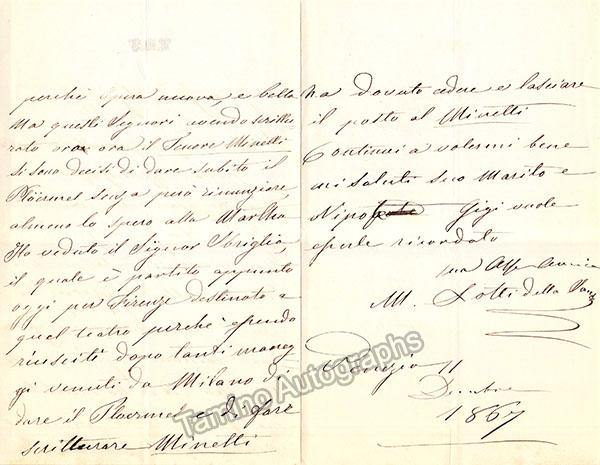 perchè opera nuova, e bella
Ma questi Signori avendo scrittu
rato ora ora il Tenore Minelli
si sono decisi di dare subito il
Plöermel senza però rinunziare,
almeno lo spero alla Martha
Ho veduto il Signor Sbriglia,
il quale è partito appunto
oggi per Firenze destinato a
quel teatro perchè essendo
riusciti dopo tanti maneg
gi venuti da Milano di
dare il Ploermel e di fare
scritturare Minelli
ha dovuto cedere e lasciare
il posto al Minelli
Continui a volermi bene
mi saluti suo Marito e
Nipote Gigi vuole
esserle ricordato
sua Aff Amica
M. Lotti della Santa
11
Dicembre
1867
Tamino Autographs